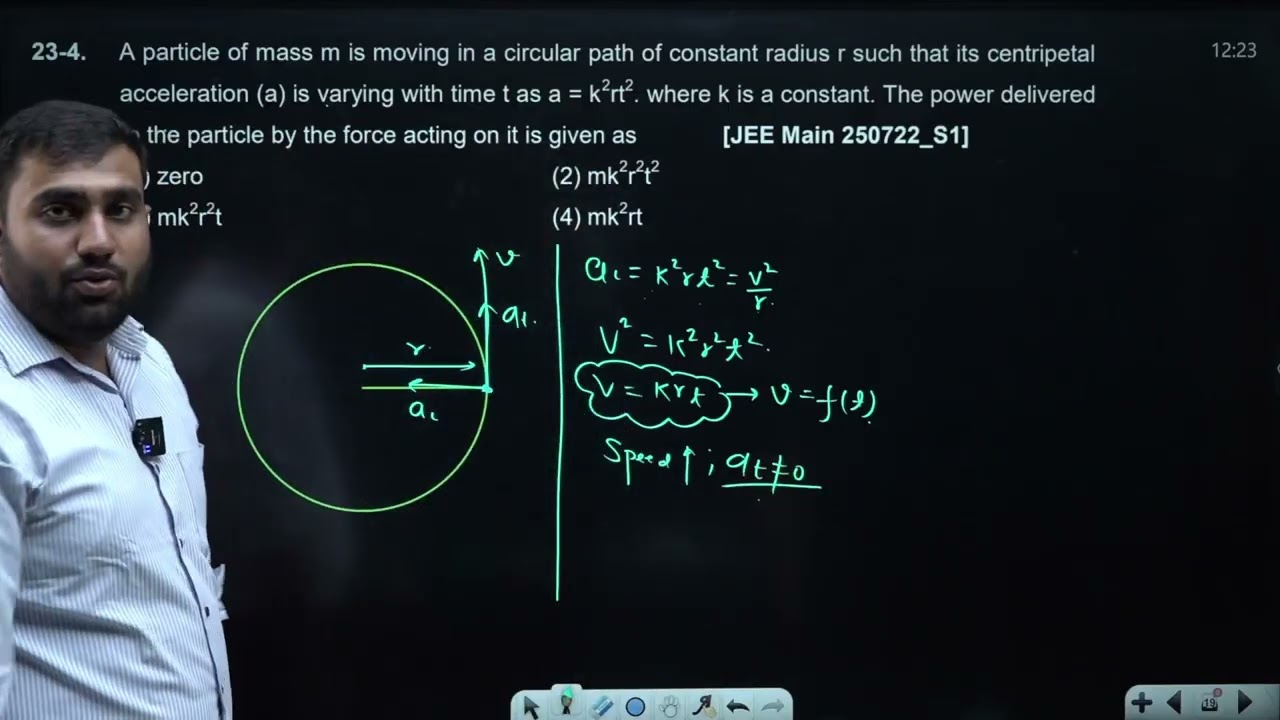 23-4. A particle of mass m is moving in a circular path of constant radius r such that its centripetal
12:23
acceleration (a) is varying with time t as a = k²rt². where k is a constant. The power delivered
the particle by the force acting on it is given as [JEE Main 250722_S1]
) zero (2) mk²r²t²
mk²r²t (4) mk²rt
v
a_t.
r
a_c
a_c = k²rt² = v²/r.
V² = k²r²t².
V = krt → v = f(t)
Speed ↑ ; a_t ≠ 0
19